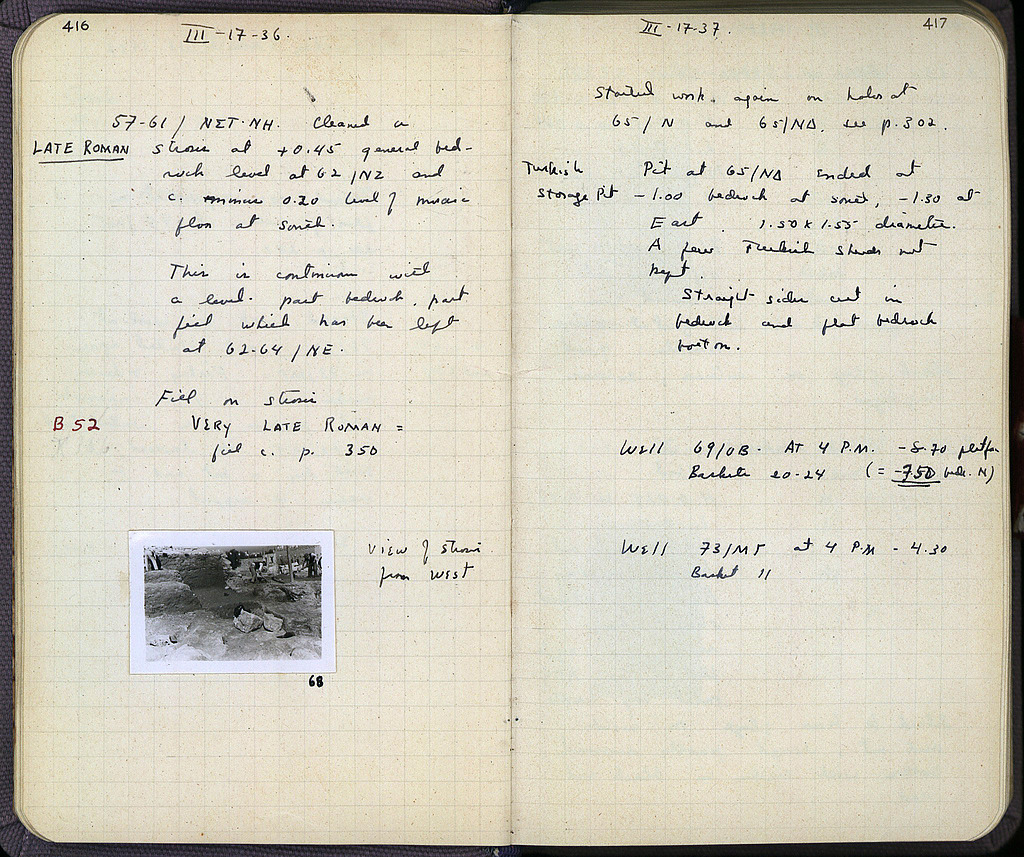 416
III-17-36.
57-61 / NΣT-NH. Cleaned a
LATE ROMAN strosis at +0.45 general bed-
rock level at 62/NZ and
c. minus 0.20 level of mosaic
floor at south.
This is continuous with
a level. part bedrock, part
fill which has been left
at 62-64/NE.
Fill on strosis
B 52 VERY LATE ROMAN =
fill c. p. 350
View of strosis
from west
68
417
III-17-37.
Started work again on holes at
65/N and 65/NΔ, see p. 302.
Turkish Pit at 65/NΔ ended at
Storage Pit -1.00 bedrock at south, -1.30 at
East. 1.50 x 1.55 diameter.
A few Turkish sherds not
kept.
Straight sides cut in
bedrock and flat bedrock
bottom.
Well 69/OB. At 4 P.M. -8.70
Baskets 20-24 (= -7.50 bedr. N)
Well 73/MΓ at 4 P.M. - 4.30
Basket 11